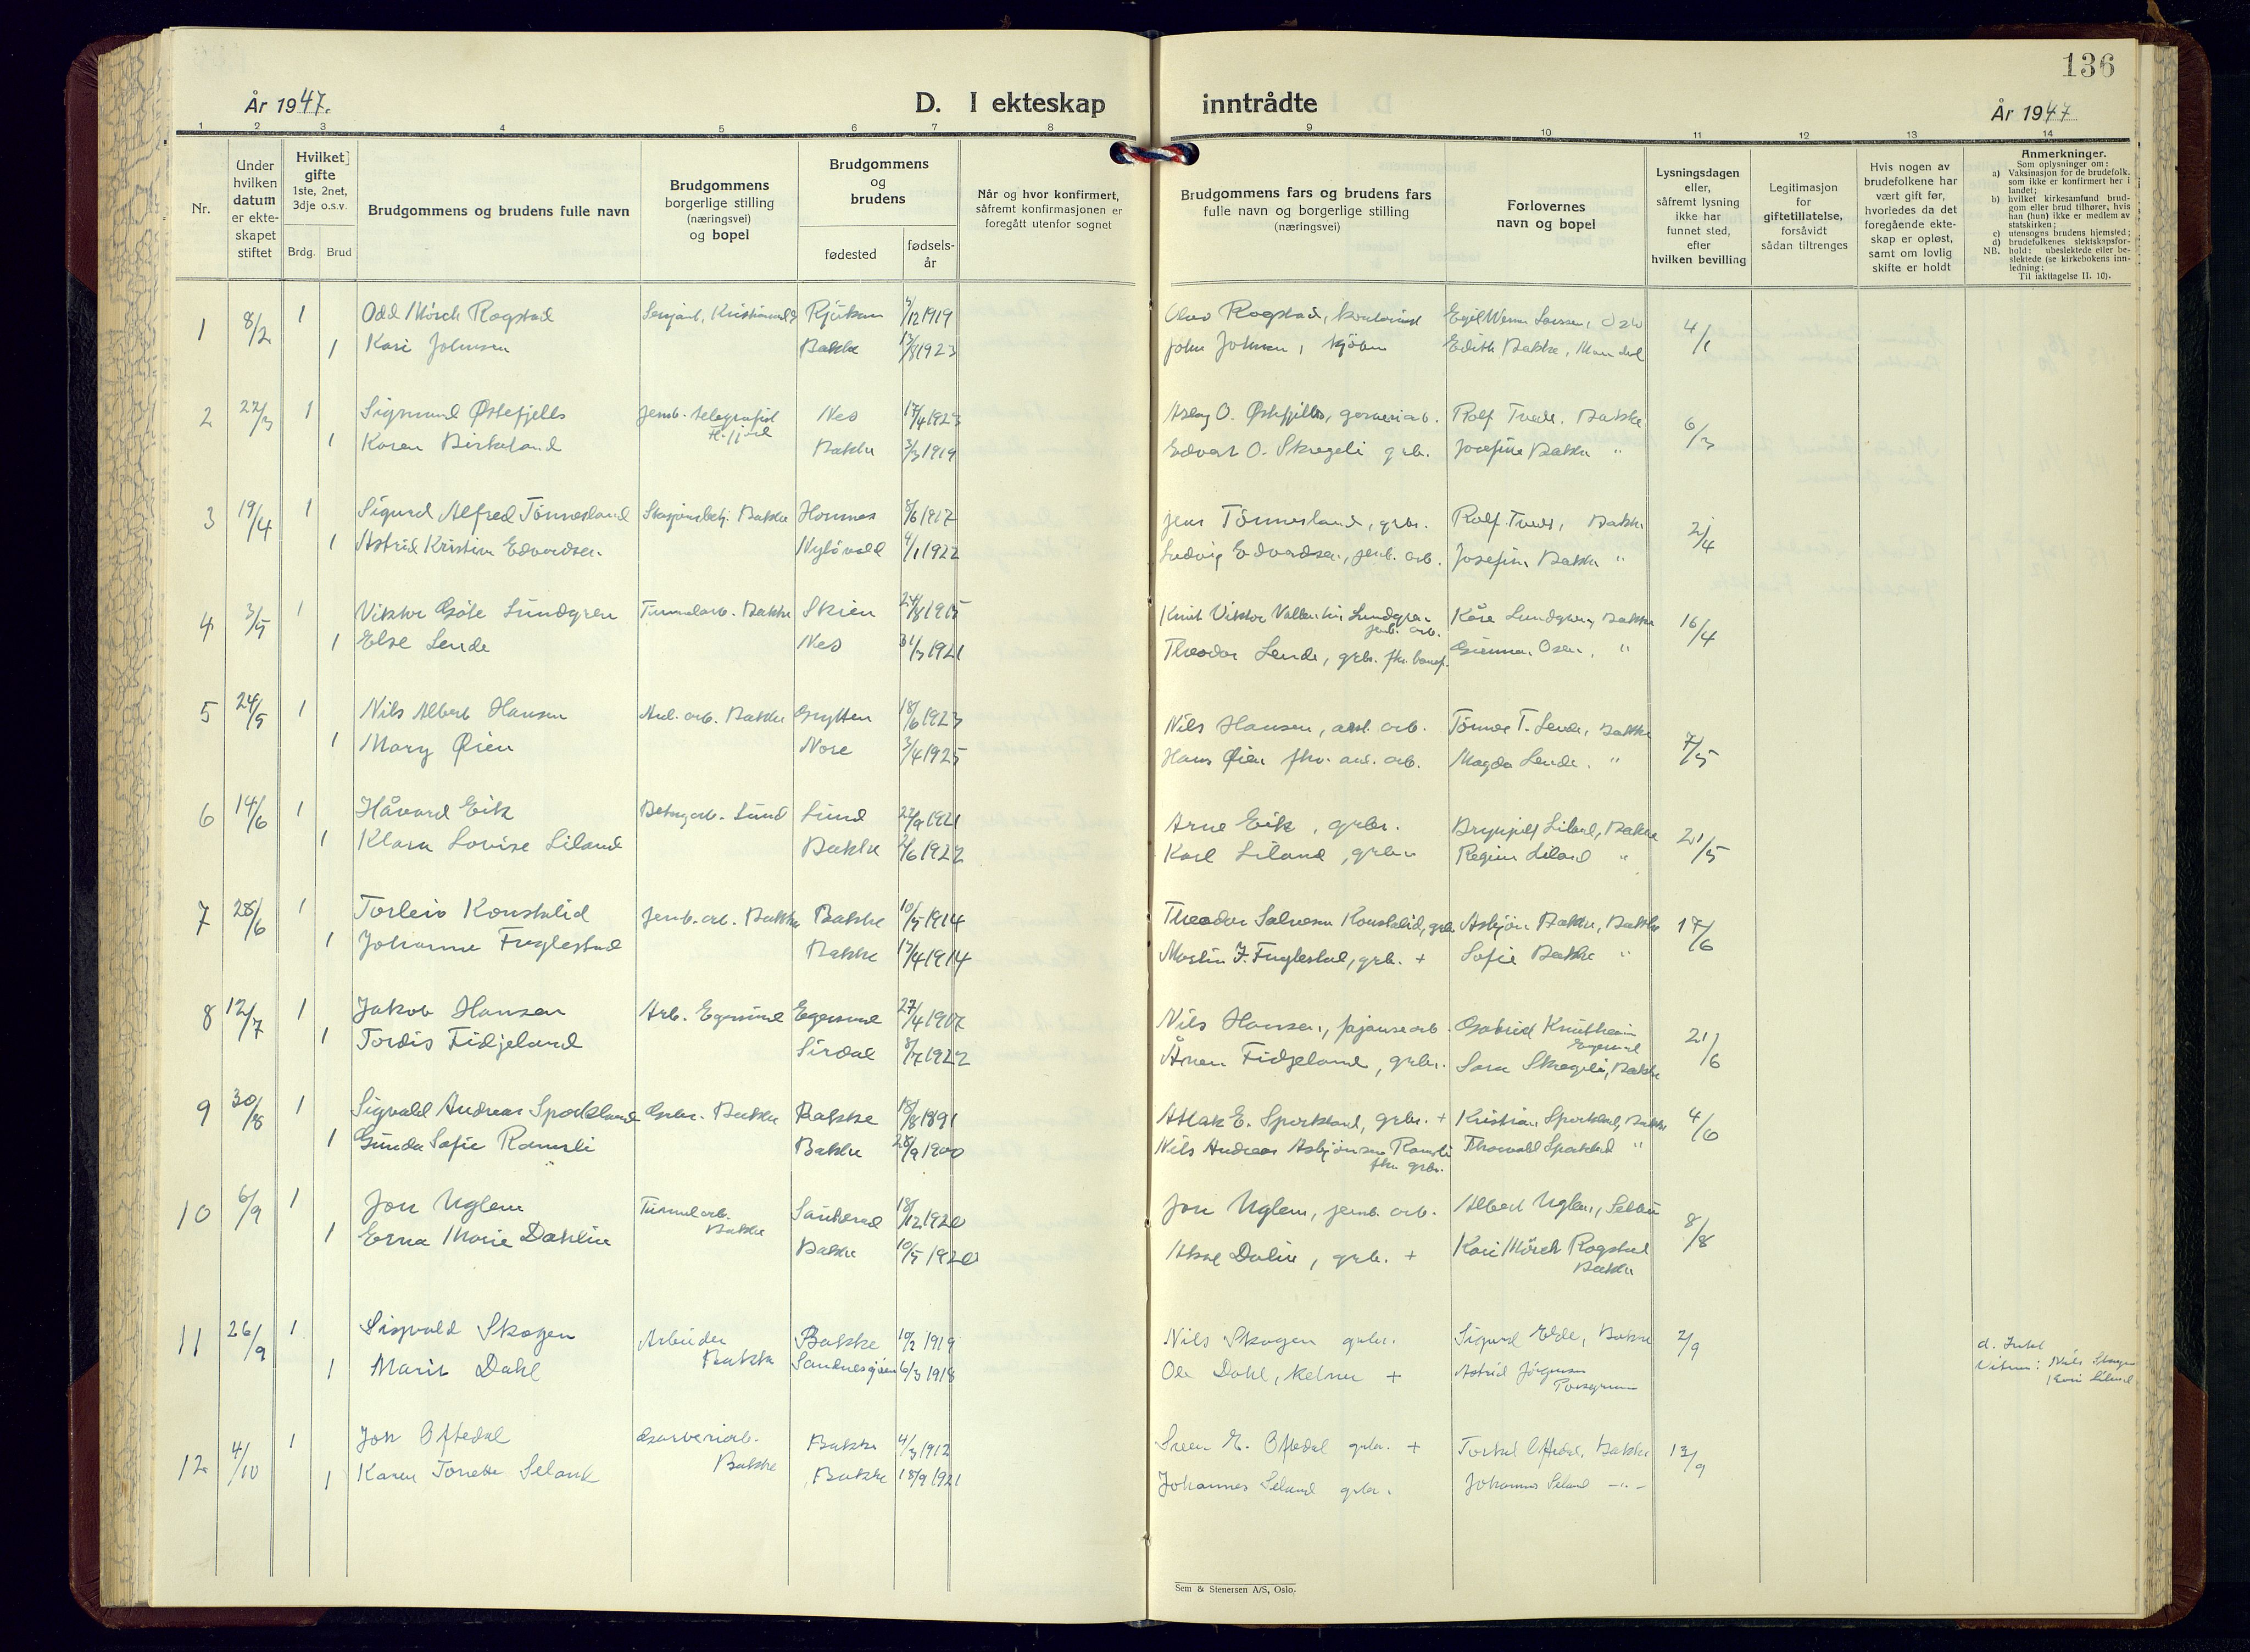 136
År 1947.
D. I ekteskap inntrådte
År 1947
1 2 3 4 5 6 7 8 9 10 11 12 13 14
Nr.
Under hvilken datum er ekte-skapet stiftet
Hvilket gifte
1ste, 2net, 3dje o.s.v.
Brdg. Brud
Brudgommens og brudens fulle navn
Brudgommens borgerlige stilling (næringsvei) og bopel
Brudgommens og brudens
fødested
fødsels-år
Når og hvor konfirmert, såfremt konfirmasjonen er foregått utenfor sognet
Brudgommens fars og brudens fars fulle navn og borgerlige stilling (næringsvei)
Forlovernes navn og bopel
Lysningsdagen eller, såfremt lysning ikke har funnet sted, efter hvilken bevilling
Legitimasjon for giftetillatelse, forsåvidt sådan tiltrenges
Hvis nogen av brudefolkene har vært gift før, hvorledes da det foregående ekte-skap er opløst, samt om lovlig skifte er holdt
Anmerkninger.
Som oplysninger om:
a) Vaksinasjon for de brudefolk, som ikke er konfirmert her i landet;
b) hvilket kirkesamfund brud-gom eller brud tilhører, hvis han (hun) ikke er medlem av statskirken;
c) utensogns brudens hjemsted;
d) brudefolkenes slektskapsfor-hold: ubeslektede eller be-slektede (se kirkebokens inn-ledning:
NB. Til iakttagelse II. 10).
1 8/2 1 Odd Mörch Rogstad Sersjant, Rjukan /12 1919 Olav Rogstad, kontorist Egil Werner Larssen, Oslo 4/1
1 Kari Johnsen Bakke /8 1923 John Johnsen, Edith Bakke, Mandal
2 22/3 1 Sigmund Østefjells jernb. telegrafist Nes 17/4 1923 Aslag O. Østefjells, garveriarb. Rolf Tveit, Bakke 6/3
1 Karen Birkeland Bakke 3/3 1919 Edvart O. Skregeli grb. Josefine Bakke "
3 19/4 1 Sigurd Alfred Tönnesland Stasjonsbetj. Bakke Hornnes 8/6 1917 Jens Tönnesland, grbr. Rolf Tveit, Bakke 2/4
1 Astrid Kristine Edvardsen 4/1 1922 Ludvig Edvardsen, jernb. arb. Josefine Bakke "
4 3/5 1 Viktor Göte Lundgren Tunnelarb. Bakke Skien /8 1915 Knut Viktor Vallentin Lundgren jernb. arb. Kåre Lundgren, Bakke 16/4
1 Else Lende Nes 31/3 1921 Theodor Lende, grbr. Gunnar Osen, "
5 24/5 1 Nils Albert Hansen Anl. arb. Bakke Grytten 18/6 1923 Nils Hansen, anl. arb. Tönnes T. Lende, Bakke 7/5
1 Mary Øien Nore 3/4 1925 Hans Øien fhv. anl. arb. Magda Lende. "
6 14/6 1 Håvard Eik Betongarb. Lund Lund /9 1921 Arne Eik, grbr. Brynjulf Liland, Bakke 21/5
1 Klara Lovise Liland Bakke /6 1922 Karl Liland, grbr Regine Liland "
7 28/6 1 Torleiv Konstalid Jernb. arb. Bakke Bakke 10/5 1914 Theodor Salvesen Konstalid, grb Asbjörn Bakke, Bakke 17/6
1 Johanne Fuglestad Bakke /4 1914 Martin J. Fuglestad, grb. + Sofie Bakke "
8 12/7 1 Jakob Hansen Arb. Egersund Egersund 27/4 1917 Nils Hansen, arb. Gabriel Knutheim Egersund 21/6
1 Tordis Fidjeland Sirdal 8/7 1922 Ånen Fidjeland, grbr. Sara Skregeli, Bakke
9 30/8 1 Sigvald Andreas Sporkland Grbr. Bakke Bakke 18/8 1891 Atlak E. Sporkland, grbr. + Kristian Sporkland, Bakke 4/6
1 Gunda Sofie Ramsli Bakke 28/9 1900 Nils Andreas Asbjörnsen Ramsli fhv. grbr. Thorvald Sporkland "
10 6/9 1 Jon Uglem Tunnelarb. Bakke 18/12 1920 Jon Uglem, jernb. arb. Albert Uglem, Selbu 8/8
1 Erna Marie Dahlin Bakke 10/5 1920 Dalin, grbr. + Kari Mörch Rogstad Bakke
11 26/9 1 Sigvald Skogen Arbeider Bakke Bakke 10/2 1919 Nils Skogen grbr. Sigurd Bakke 2/9 d. Intet
1 Marit Dahl Sandnessjøen 6/3 1918 Ole Dahl, kelner + Astrid Jörgensen Porsgrunn Vitner: Nils Skogen Liland
12 4/10 1 Jon Oftedal Garveriarb. Bakke Bakke 4/3 1912 Sven E. Oftedal grbr. + Torkel Oftedal, Bakke 13/9
1 Karen Tonette Seland Bakke 18/9 1921 Johannes Seland grbr. Johannes Seland -"-
Sem & Stenersen A/S, Oslo.